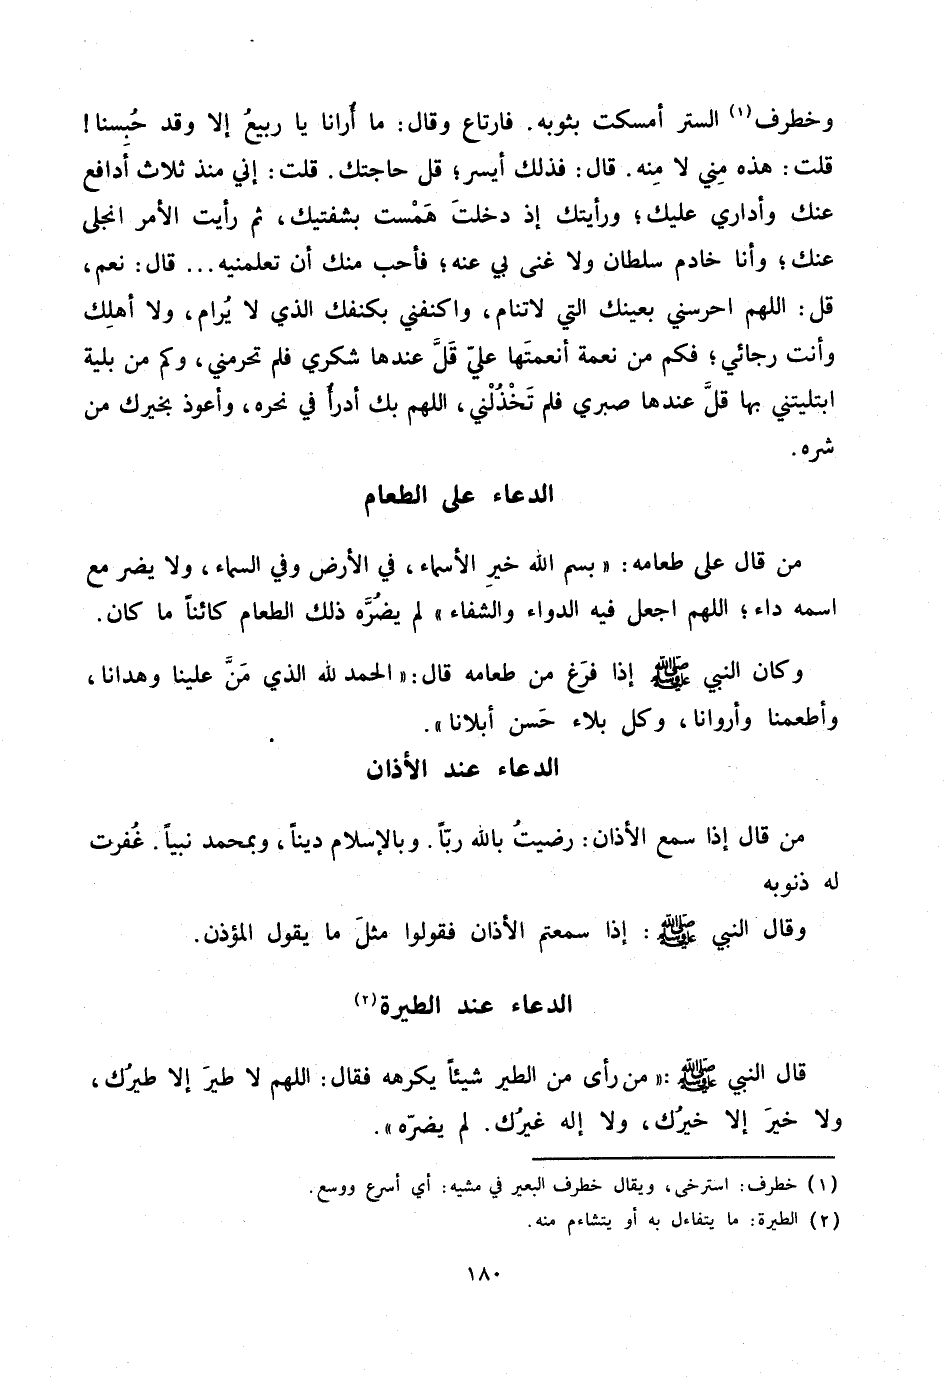 وخطرف(١) الستر أمسكت بثوبه. فارتاع وقال: ما أُرانا يا ربيعُ إلا وقد حُبِسنا!
قلت: هذه مِني لا مِنه. قال: فذلك أيسر؛ قل حاجتك. قلت: إني منذ ثلاث أدافع
عنك وأداري عليك؛ ورأيتك إذ دخلتَ هَمْست بشفتيك، ثم رأيت الأمر انجلى
عنك؛ وأنا خادم سلطان ولا غنى بي عنه؛ فأحب منك أن تعلمنيه... قال: نعم،
قل: اللهم احرسني بعينك التي لاتنام، واكنفني بكنفك الذي لا يُرام، ولا أهلِك
وأنت رجائي؛ فكم من نعمة أنعمتَها عليّ قَلَّ عندها شكري فلم تحرمني، وكم من بلية
ابتليتني بها قلَّ عندها صبري فلم تَخْذُلْني، اللهم بك أدرأُ في نحره، وأعوذ بخيرك من
شره.
الدعاء على الطعام
من قال على طعامه: « بسم الله خيرِ الأسماء، في الأرض وفي السماء، ولا يضر مع
اسمه داء؛ اللهم اجعل فيه الدواء والشفاء» لم يضُرَّه ذلك الطعام كائناً ما كان.
وكان النبي ﷺ إذا فرَغ من طعامه قال:« الحمد لله الذي مَنَّ علينا وهدانا،
وأطعمنا وأروانا، وكل بلاء حَسن أبلانا».
الدعاء عند الأذان
من قال إذا سمع الأذان: رضيتُ بالله ربّاً. وبالإسلام ديناً، وبمحمد نبياً. غُفرت
له ذنوبه
وقال النبي ﷺ: إذا سمعتم الأذان فقولوا مثلَ ما يقول المؤذن.
الدعاء عند الطيرة(٢)
قال النبي ﷺ:« من رأى من الطير شيئاً يكرهه فقال: اللهم لا طيرَ إلا طيرُك،
ولا خيرَ إلا خيرُك، ولا إله غيرُك. لم يضرّه».
(١) خطرف: استرخى، ويقال خطرف البعير في مشيه: أي أسرع ووسع.
(٢) الطيرة: ما يتفاءل به أو يتشاءم منه.
١٨٠